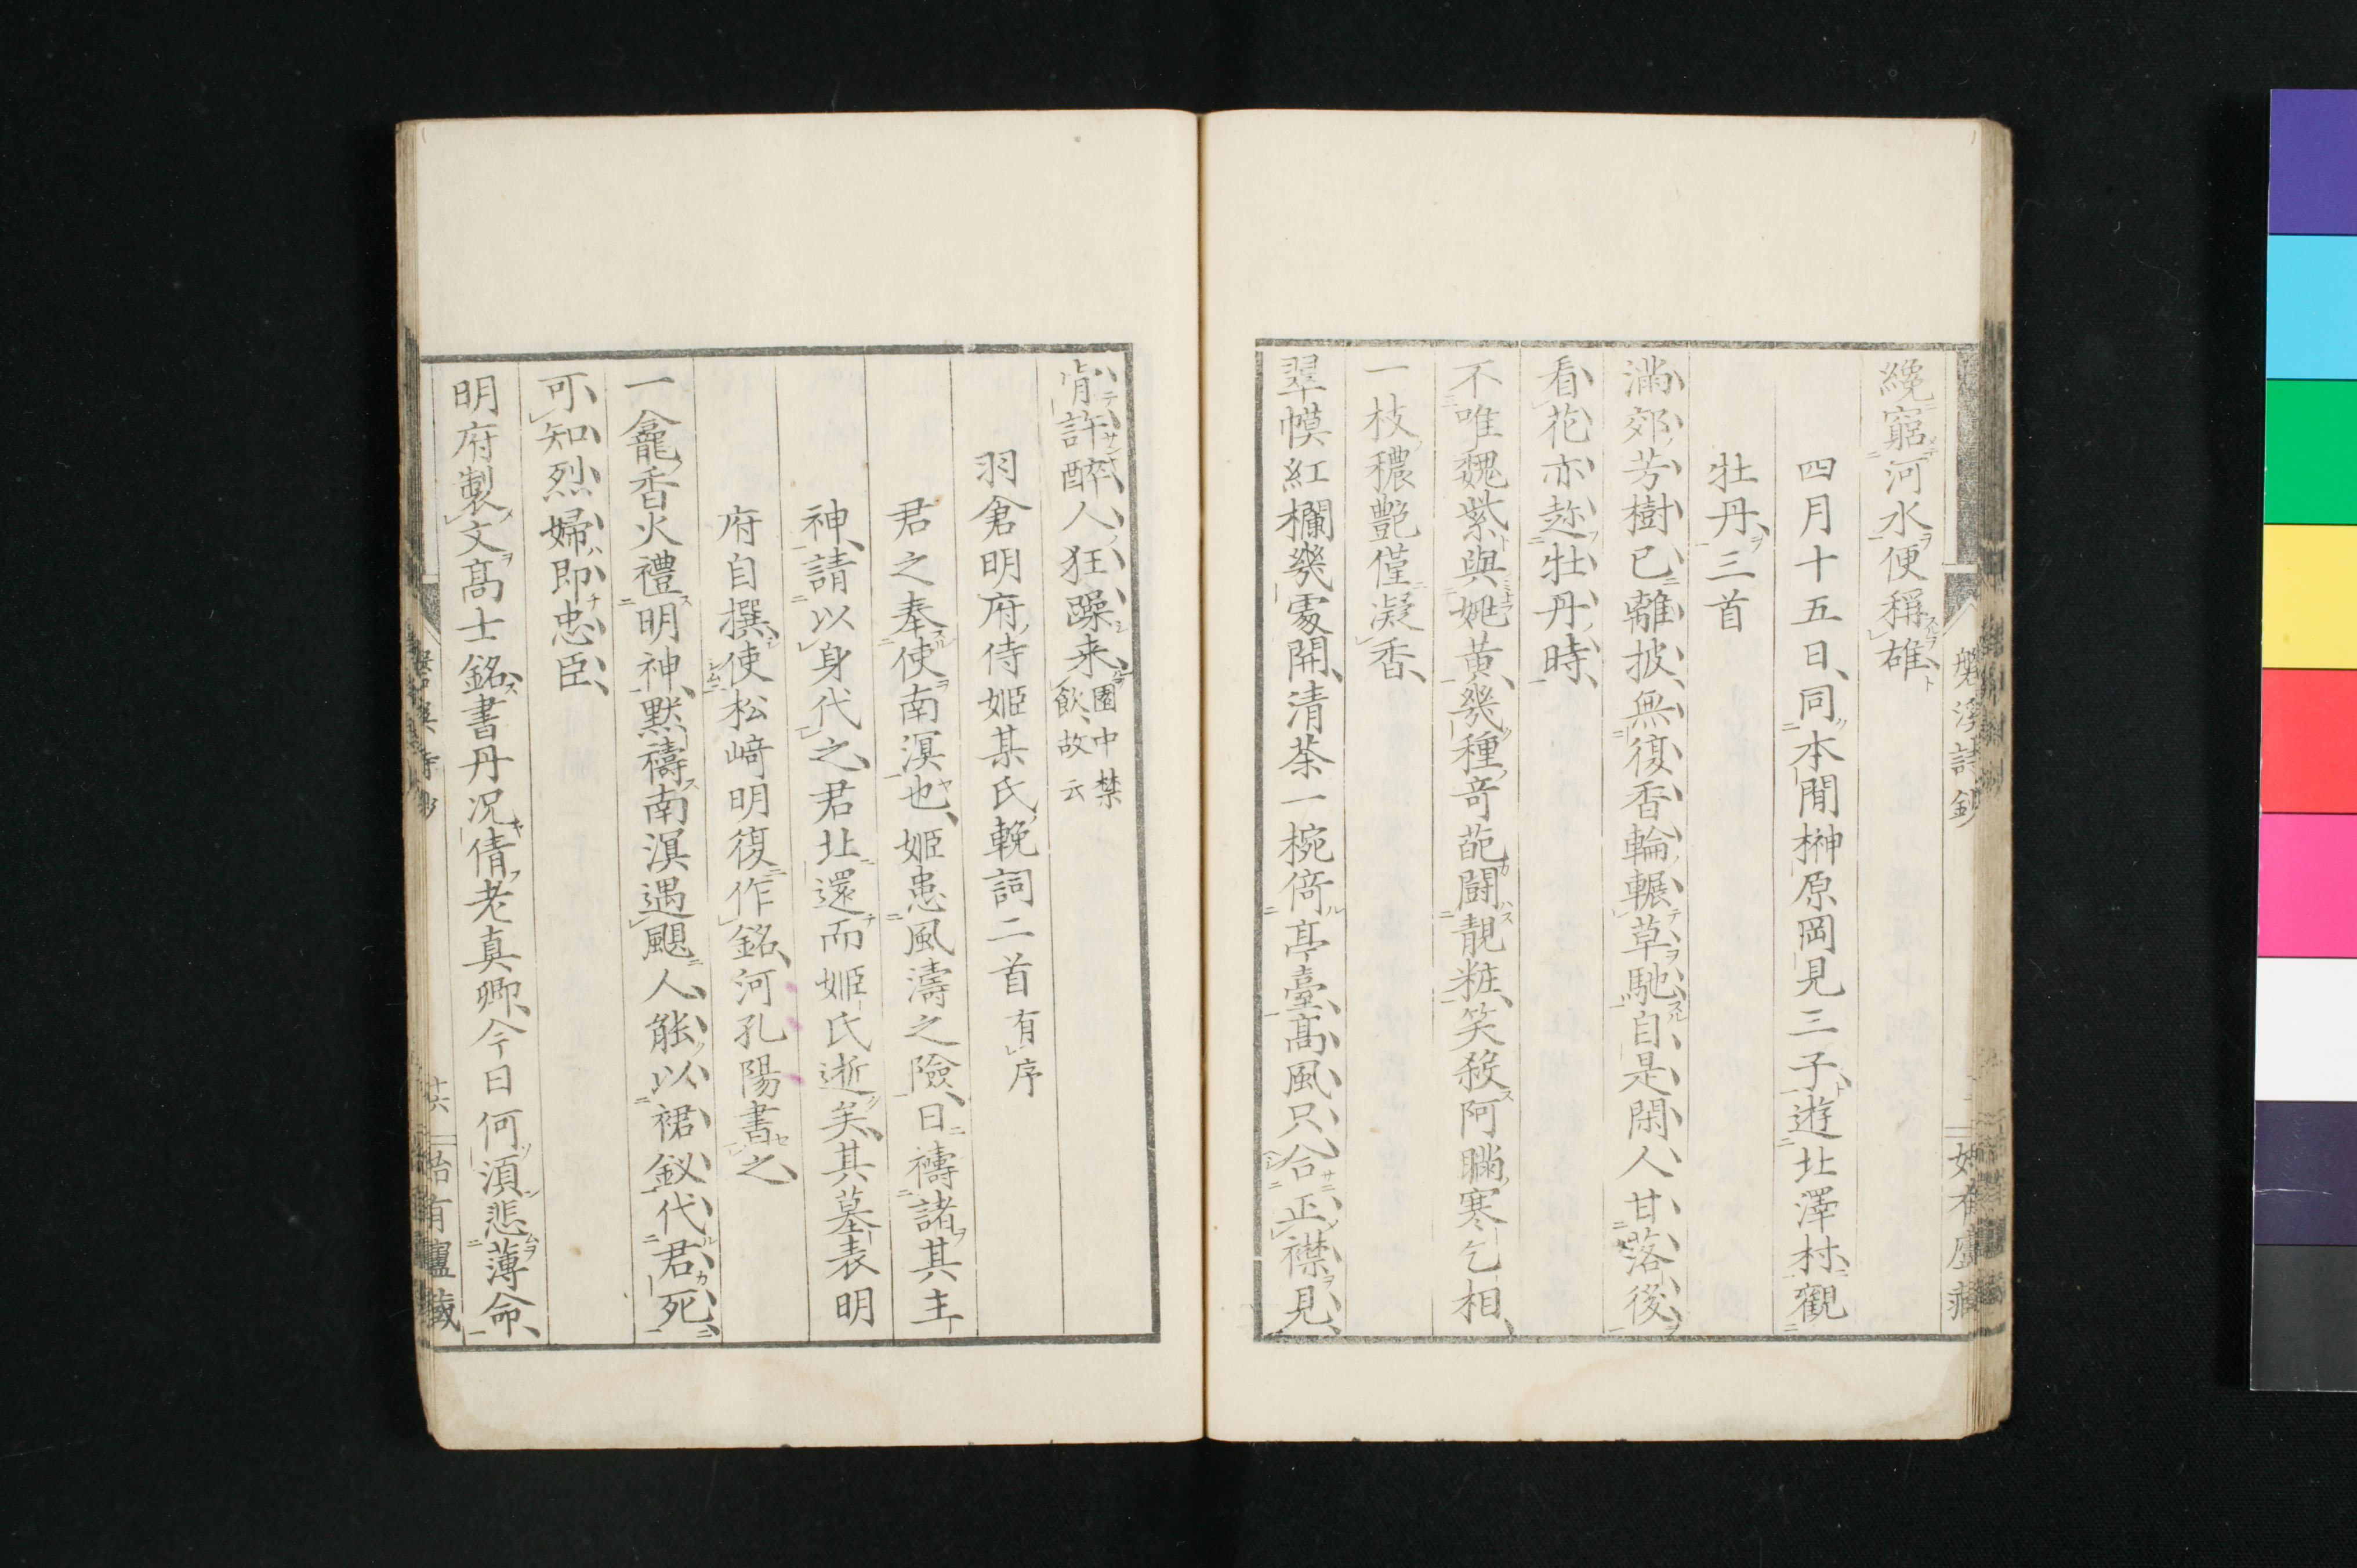 纔窮河水便稱雄
四月十五日同本間榊原岡見三子遊北澤村觀
牡丹三首
滿郊芳樹已離披無復香輪輾草馳自是閑人甘落後
看花亦趂牡丹時
不唯魏紫與姚黃幾種奇葩鬪靚粧笑殺阿瞞寒乞相
一枝穠艷僅凝香
翠幙紅欄幾處開清茶一椀倚亭臺高風只合正襟見
肯許醉人狂躁来園中禁飲故云
羽倉明府侍姬某氏輓詞二首有序
君之奉使南溟也姬患風濤之險日禱諸其主
神請以身代之君北還而姬氏逝矣其墓表明
府自撰使松﨑明復作銘河孔陽書之
一龕香火禮明神默禱南溟遇颶人能以裙釵代君死
可知烈婦即忠臣
明府製文高士銘書丹况倩老真卿今日何須悲薄命